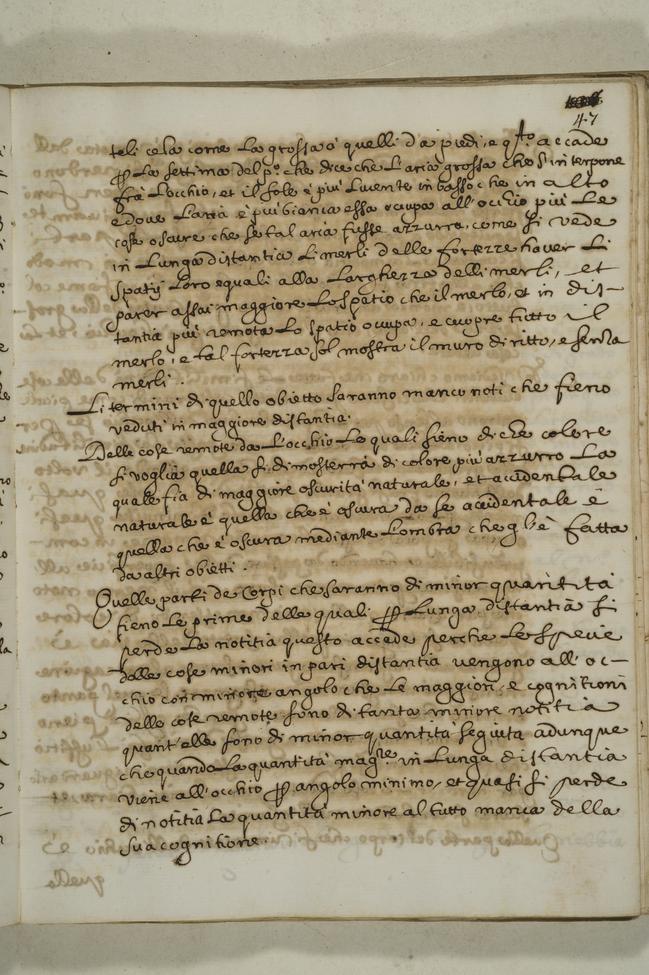 47
teli cela come la grossa á quelli da piedi, e qsto accade
ꝑ la settima del po. che dice che l'aria grossa che s'interpone
frà l'occhio, et il sole è piú lucente in basso che in alto
e doue l'aria è piú bianca essa ocupa all'ochio piú le
cose oscure che se tal aria fusse azzurra, come si vede
in lunga distantia li merli delle fortezze hauer li
spatij loro equali alla larghezza delli merli, et
parer assai maggiore lo spatio che il merlo, et in dis-
tantia piú remota lo spatio ocupa, e cuopre tutto il
merlo, e tal fortezza sol mostra il muro diritto, e senza
merli.
Li termini di quello obietto saranno manco noti che fieno
veduti in maggiore distantia.
Delle cose remote da l'occhio le quali sieno di che colore
si voglia quella si dimosterrà di colore piú azzurro la
quale fia di maggiore oscurità naturale, et accidentale
naturale è quella che è oscura da se accidentale è
quella che è oscura mediante l'ombra che gl'è fatta
da altri obietti.
Quelle parti de corpi che saranno di minor quantità
fieno le prime delle quali ꝑ lunga distantia si
perde la notitia questo accade perche le spetie
delle cose minori in pari distantia vengono all'oc-
chio con minore angolo che le maggiori, e cognitioni
delle cose remote sono di tanta minore notitia
quant'elle sono di minor quantità seguita adunque
che quando la quantità magre in lunga distantia
viene all'occhio ꝑ angolo minimo, et quasi si perde
di notitia la quantità minore al tutto manca della
sua cognitione.
quello